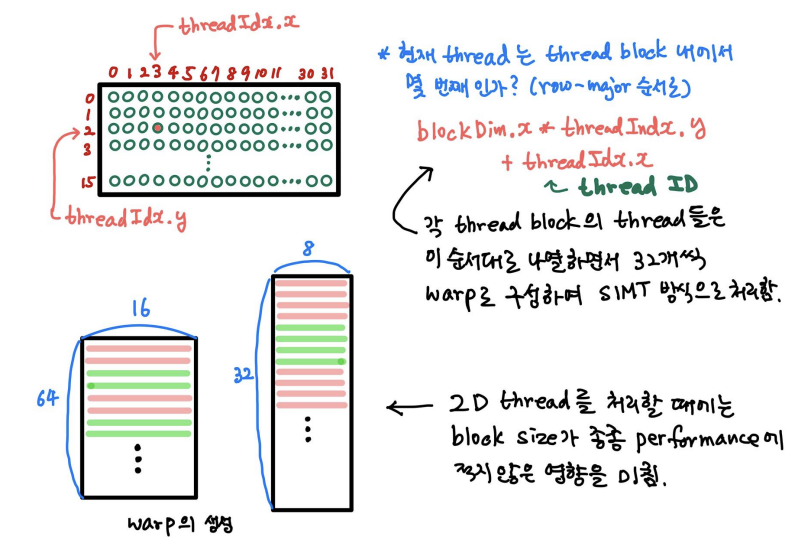 threadIdx.x
0 1 2 3 4 5 6 7 8 9 10 11 30 31
0
1
2
3
15
threadIdx.y
* 현재 thread는 thread block 내에서
몇 번째 인가? (row-major 순서로)
blockDim.x * threadIndx.y
+ threadIdx.x
← thread ID
각 thread block의 thread들은
이 순서대로 나열하면서 32개씩
warp로 구성하여 SIMT 방식으로 처리함.
16
64
8
32
warp의 생성
← 2D thread를 처리할 때에는
block size가 종종 performance에
적지않은 영향을 미침.